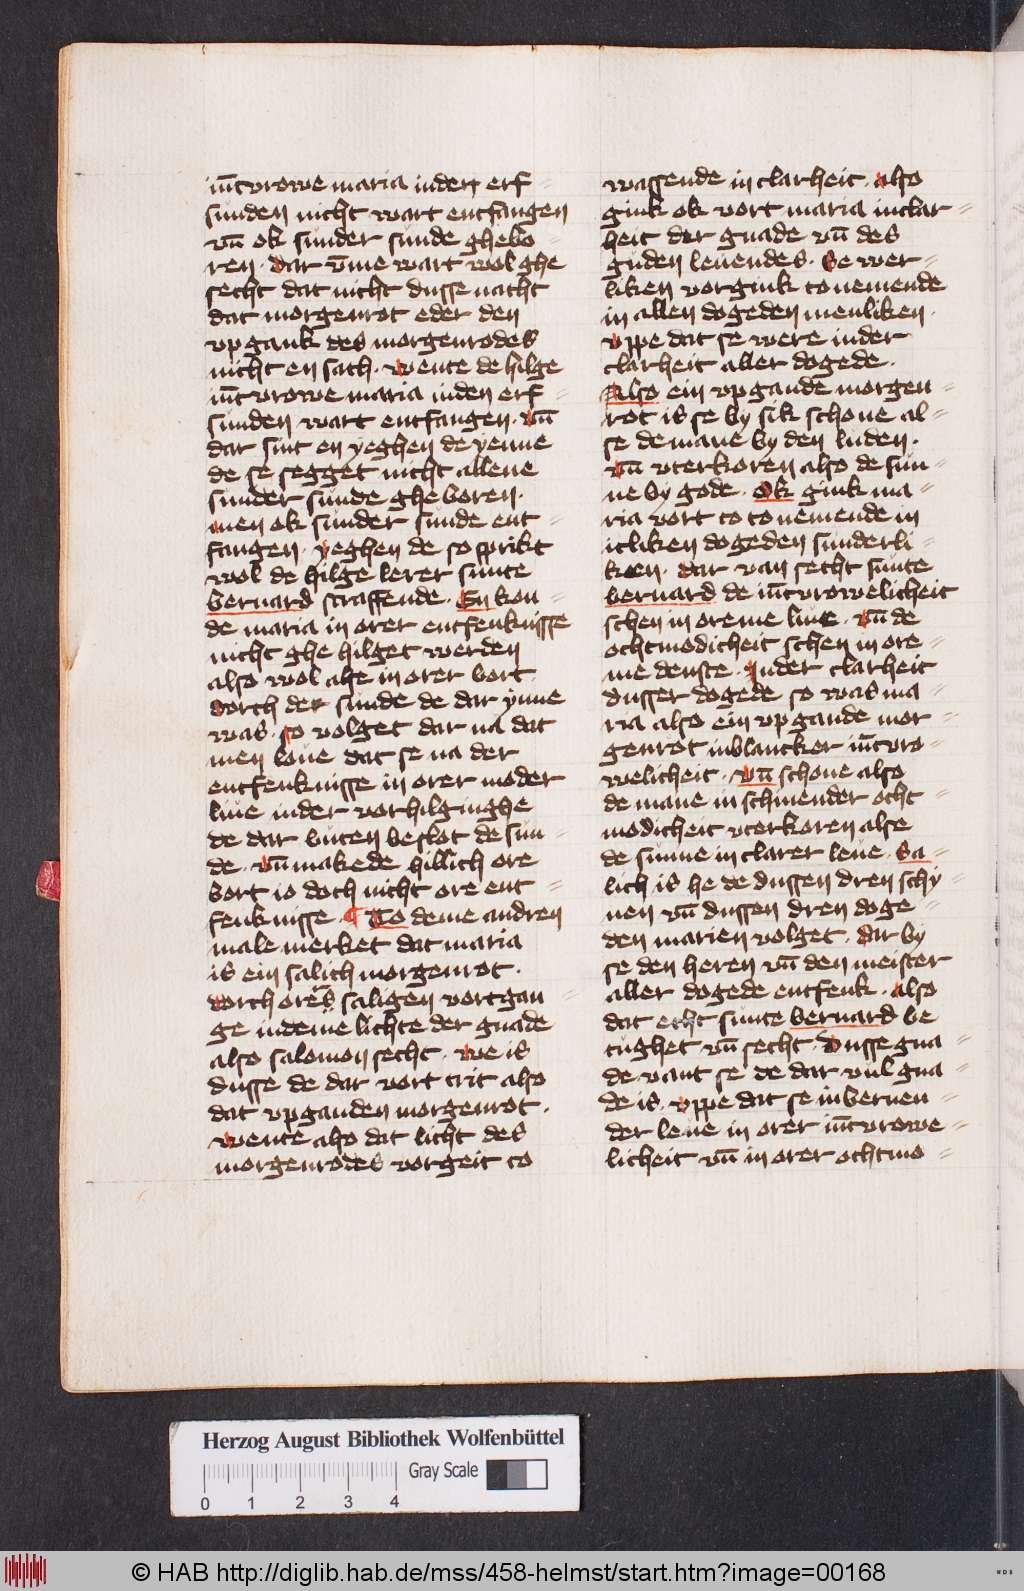 iūcvrowe maria in den erf=
sunden nicht wart entfangen
vn̄ ok sunder sunde ghebo=
ren. dar vm̄e wart wol ghe
secht dat nicht dusse nacht
dat morgenrot eder den
vpgank des morgenrodes
nicht en sach. wente de hilge
iūcvrowe maria in den erf=
sunden wart entfangen. vn̄
dar sint en yeghen de yenne
de se segget nicht allene
sunder sunde gheboren.
men ok sunder sunde ent=
fangen. yeghen de so sprikt
wol de hilge lerer sunte
bernard straffende. En kon=
de maria in orer entfenknisse
nicht ghe hilget werden
also wol alze in orer bort
dorch der sunde de dar ynne
was. so volget dar na dat
men loue dat se na der
entfenknisse in orer moder
liue in der vorhilginghe
de dar buten beslot de sun=
de. vn̄ makede hillich ore
bort io doch nicht ore ent=
fenknisse. ¶ To deme andren
male merket dat maria
is ein salich morgenrot.
dorch ores saligen vortgan=
ge in deme lichte der gnade
also salomon secht. we is
dusse de dar vort trit also
dat vpganden morgenrot.
wente also dat licht des
morgenrodes vorgeit to
wassende in clarheit. also
gink ok vort maria in clar=
heit der gnade vn̄ des
guden leuendes. Se wer=
liken vorgink to nemende
in allen dogeden menliken.
vppe dat se were in der
clarheit aller dogede.
Also ein vpgande morgen=
rot is se by sik schone al=
se de mane by den luden.
vn̄ vterkoren also de sun=
ne by gode. Ok gink ma=
ria vort to to nemende in
itliken dogeden sunderli=
ken. dar van secht sunte
bernard de iūcvrowelicheit
schen in oreme liue. vn̄ de
ochtmodicheit schen in ore=
me denste. In der clarheit
dusser dogede so was ma=
ria also ein vpgande mor=
genrot in blancker iūcvro=
welicheit. vn̄ schone also
de mane in schinender ocht=
modicheit vterkoren alse
de sunne in clarer leue. Sa=
lich is he de dussen dren schy=
nen vn̄ dussen dren doge=
den marien volget. dar by
se den heren vn̄ den meister
aller dogede entfenk. also
dat echt sunte bernard be
tughet vn̄ secht. Dusse gna=
de vant se de dar vul gna=
de is. vppe dat se in bernen=
der leue in orer iūcvrowe=
licheit vn̄ in orer ochtmo=
Herzog August Bibliothek Wolfenbüttel
Gray Scale
0 1 2 3 4
© HAB http://diglib.hab.de/mss/458-helmst/start.htm?image=00168